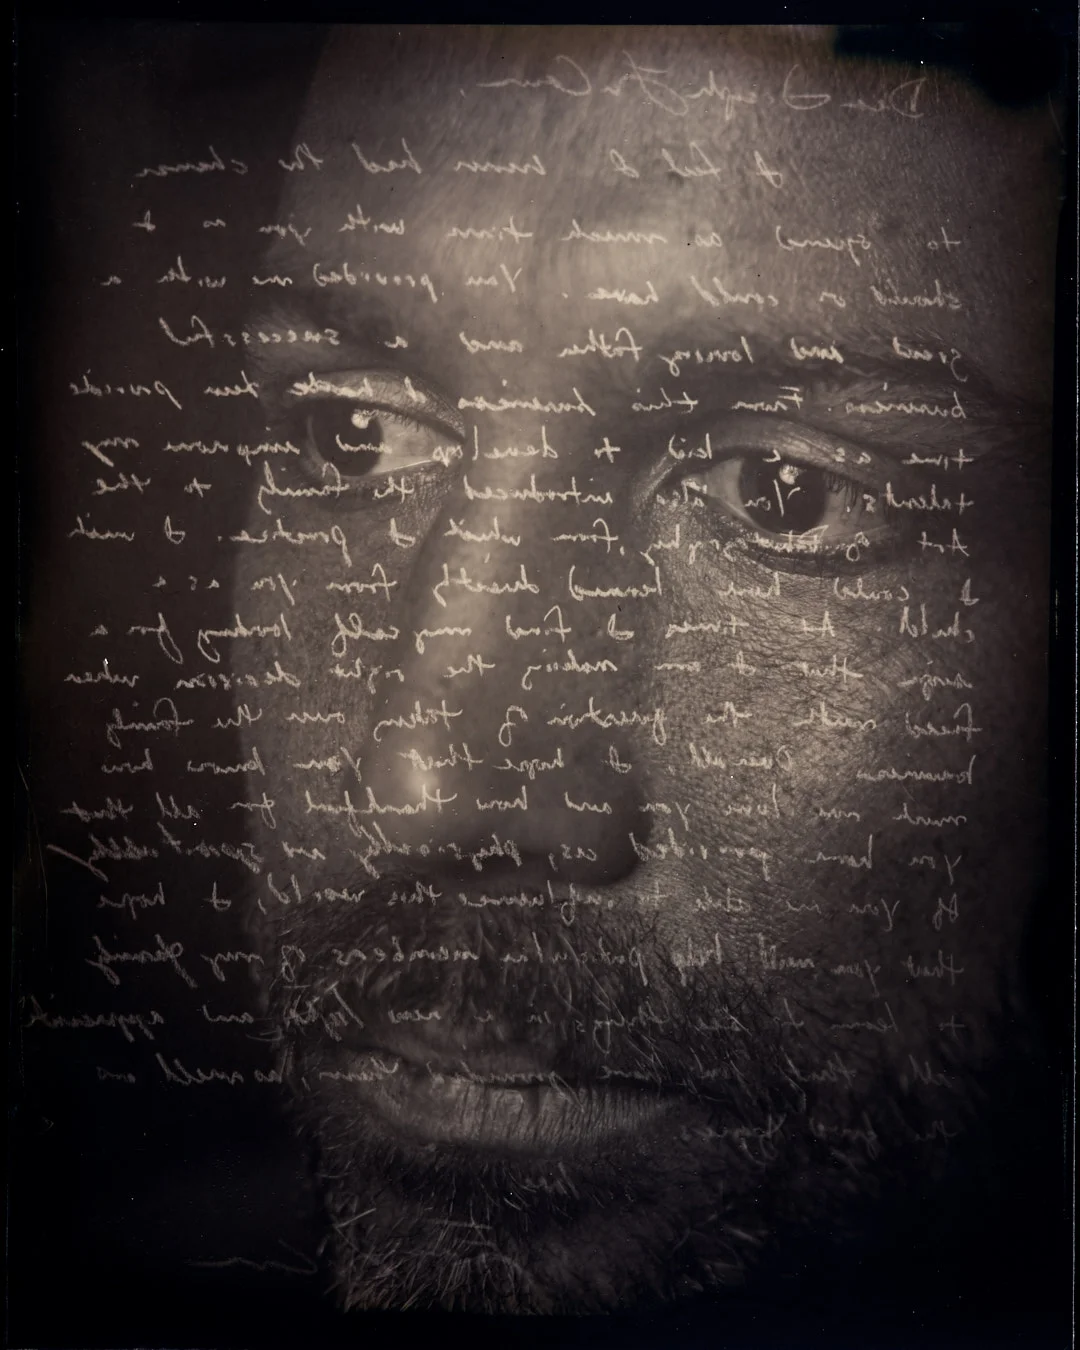 Dear Joseph
I feel I never had the chance
to spend as much time with you as I
should or could have. You provided me with a
great and loving father and a successful
business. From this business I made then provide
time as a kid to develop and improve my
talents. You also introduced the family to the
Art of Photography, from which I practice. I wish
I could have learned directly from you as a
child. At times I find my self looking for a
sign that I am making the right decision when
faced with the question of taking over the family
business. Over all, I hope that you know how
much we love you and how thankful for all that
you have provided us, physically and spiritually
If you are able to influence this world, I hope
that you will help particular members of my family
to learn to see things in a new light, and appreciate
all that you have provided them, as well as
the good